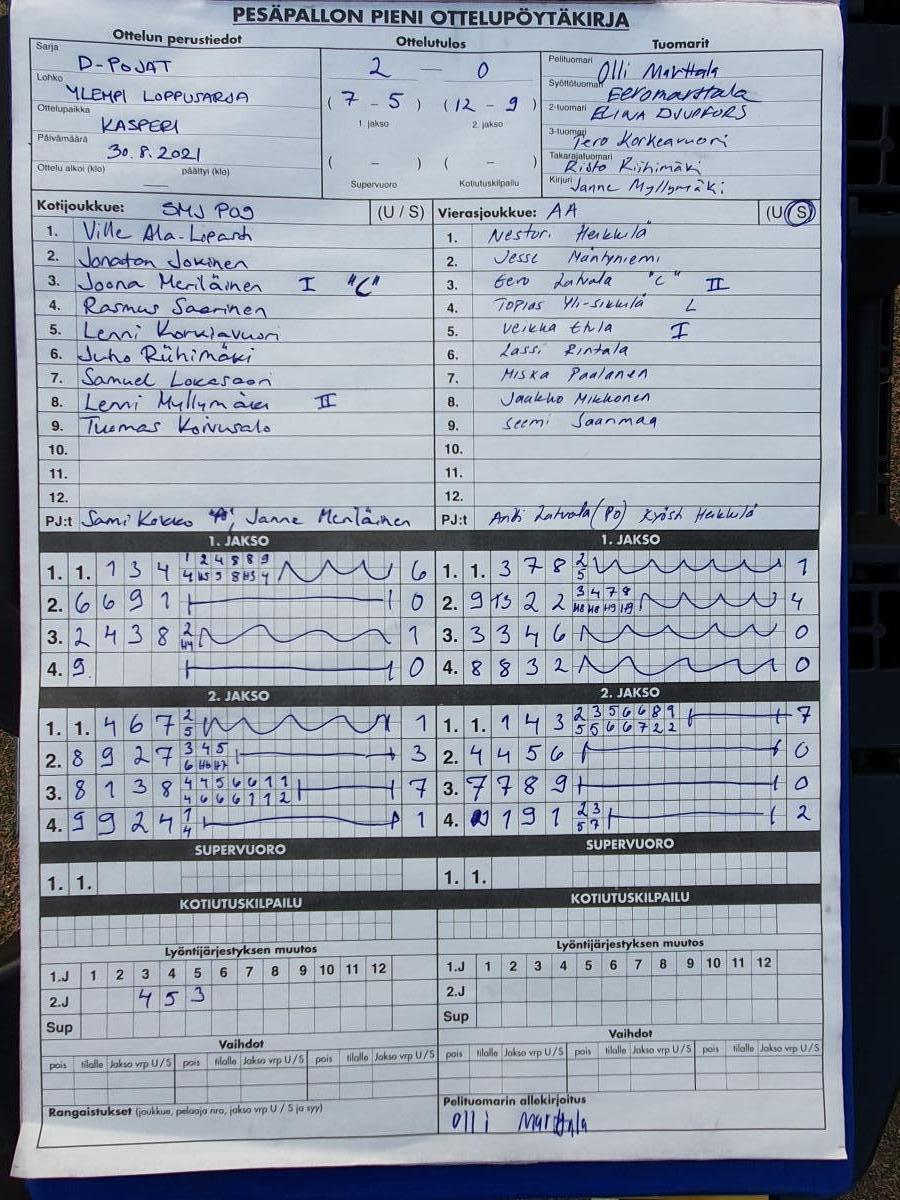 PESÄPALLON PIENI OTTELUPÖYTÄKIRJA
Ottelun perustiedot Ottelutulos Tuomarit
Sarja D-POJAT
Lohko YLEMPI LOPPUSARJA
Ottelupaikka KASPERI
Päivämäärä 30.8.2021
Ottelu alkoi (klo) — päättyi (klo)
2 — 0
(7 - 5) (12 - 9)
1. jakso 2. jakso
( - ) ( - )
Supervuoro Kotiutuskilpailu
Pelituomari Olli Marttala
Syöttötuomari Eero Marttala
2-tuomari ELINA DJUPFORS
3-tuomari Tero Korkeavuori
Takarajatuomari Risto Riihimäki
Kirjuri Janne Myllymäki
Kotijoukkue: SMJ P09 (U / S)
1. Ville Ala-Lipasti
2. Jonatan Jokinen
3. Joona Meriläinen I "C"
4. Rasmus Saarinen
5. Lenni Korkiavuori
6. Juho Riihimäki
7. Samuel Lokasaari
8. Lenni Myllymäki II
9. Tuomas Koivusalo
10.
11.
12.
PJ:t Sami Kokko "A", Janne Meriläinen
Vierasjoukkue: AA (U / S)
1. Nestori Heikkilä
2. Jesse Mäntyniemi
3. Eero Latvala "C" II
4. Topias Yli-Sikkilä L
5. Veikka Ehla I
6. Lassi Rintala
7. Miska Paalanen
8. Jaakko Mikkonen
9. Seemi Saanmaa
10.
11.
12.
PJ:t Antti Latvala (PO) Kyösti Heikkilä
1. JAKSO
1. 1. 1 3 4 1 2 4 5 8 9 6
4 H5 5 8 H3 4
2. 6 6 9 1 0
3. 2 4 3 8 2 1
H4
4. 9. 0
1. JAKSO
1. 1. 3 7 8 2 1
5
2. 9 1 3 2 2 3 4 7 8 4
H8 H8 H9 H9
3. 3 3 4 6 0
4. 8 8 3 2 0
2. JAKSO
1. 1. 4 6 7 2 1
5
2. 8 9 2 7 3 4 5 3
6 H6 H7
3. 8 1 3 8 4 4 5 6 6 1 1 7
4 6 6 6 1 1 2
4. 9 9 2 4 1 1
4
2. JAKSO
1. 1. 1 4 3 2 3 5 6 6 8 9 7
5 5 6 6 7 2 2
2. 4 4 5 6 0
3. 7 7 8 9 0
4. 1 9 1 2 3 2
5 7
SUPERVUORO
1. 1.
SUPERVUORO
1. 1.
KOTIUTUSKILPAILU
KOTIUTUSKILPAILU
Lyöntijärjestyksen muutos
1.J 1 2 3 4 5 6 7 8 9 10 11 12
2.J 4 5 3
Sup
Lyöntijärjestyksen muutos
1.J 1 2 3 4 5 6 7 8 9 10 11 12
2.J
Sup
Vaihdot
pois tilalle Jakso vrp U / S pois tilalle Jakso vrp U / S pois tilalle Jakso vrp U / S
Vaihdot
pois tilalle Jakso vrp U / S pois tilalle Jakso vrp U / S pois tilalle Jakso vrp U / S
Rangaistukset (joukkue, pelaaja nro, jakso vrp U / S ja syy)
Pelituomarin allekirjoitus
Olli Marttala